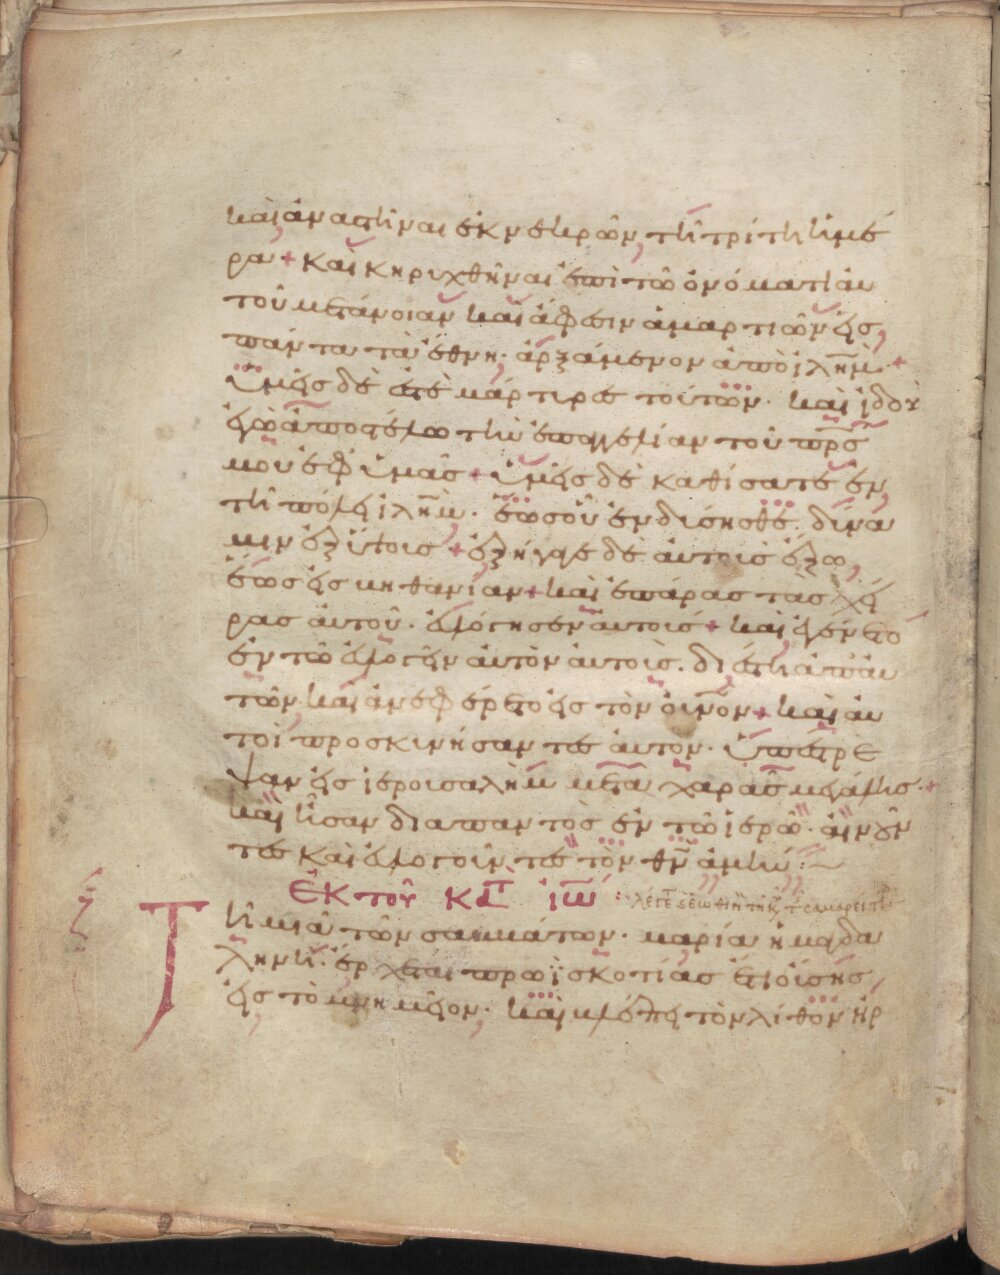 καὶ ἀναστῆναι ἐκ νεκρῶν, τῆ τρίτη ἡμέ
ρα + καὶ κηρυχθῆναι ἐπὶ τῶ ὀνόματι ἀυ
τοῦ μετάνοιαν καὶ ἄφεσιν ἁμαρτιῶν εἰς,
πάντα τὰ ἔθνη· ἀρξάμενον ἀπὸ ἰλῆμ· +
ὑμεῖς δὲ ἐστὲ μάρτυρες τούτων· καὶ ἰδοὺ
ἐγὼ ἀποστέλλω τὴν ἐπαγγελίαν τοῦ πρς
μου ἐφ ὑμᾶς + ὑμεῖς δὲ καθίσατε ἐν,
τῆ πόλει ἰλῆμ· ἕως οὗ ἐνδύσησθε δύνα
μιν ἐξ ὕψους + ἐξήγαγε δὲ αὐτοὺς ἔξω,
ἕως εἰς βηθανίαν + καὶ ἐπάρας τὰς χεῖ
ρας ἀυτοῦ· ἐυλόγησεν ἀυτούς + καὶ ἐγένετο
ἐν τῶ ἐυλογεῖν ἀυτὸν ἀυτοὺς· διέστη ἀπ ἀυ
τῶν, καὶ ἀνεφέρετο εἰς τὸν ὀυνον + καὶ ἀυ
τοὶ προσκυνήσαντες ἀυτὸν· ὑπέστρε
ψαν εἰς ἱερουσαλὴμ μετὰ χαρᾶς μεγάλης· +
καὶ ἦσαν διαπαντὸς ἐν τῶ ἱερῶ· ἀινοῦν
τες καὶ ἐυλογοῦντες τὸν θν ἀμήν :~
ἐκ τοῦ κατ ἰω :
Τῆ μιᾶ τῶν σαββάτων· μαρία ἡ μαγδα
ληνὴ· ἔρχεται πρωῒ σκοτίας ἔτι οὔσης,
εἰς τὸ μνημεῖον· καὶ βλέπει τὸν λίθον ἠρ